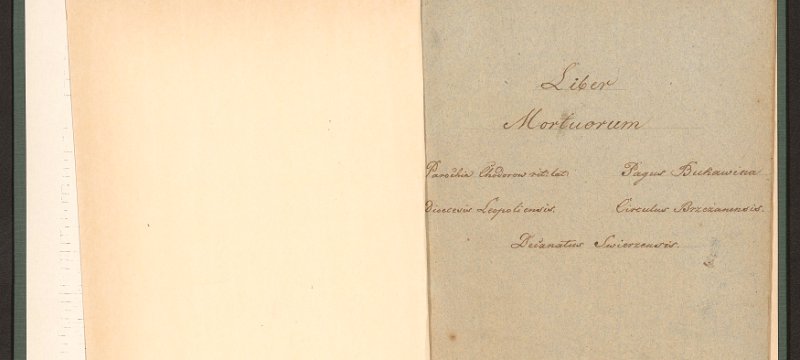 Liber
Mortuorum
Parochia Chodorow rit: lat: Pagus Bukawina
Dioecesis Leopoliensis. Circulus Brzezanensis.
Decanatus Swierzensis.